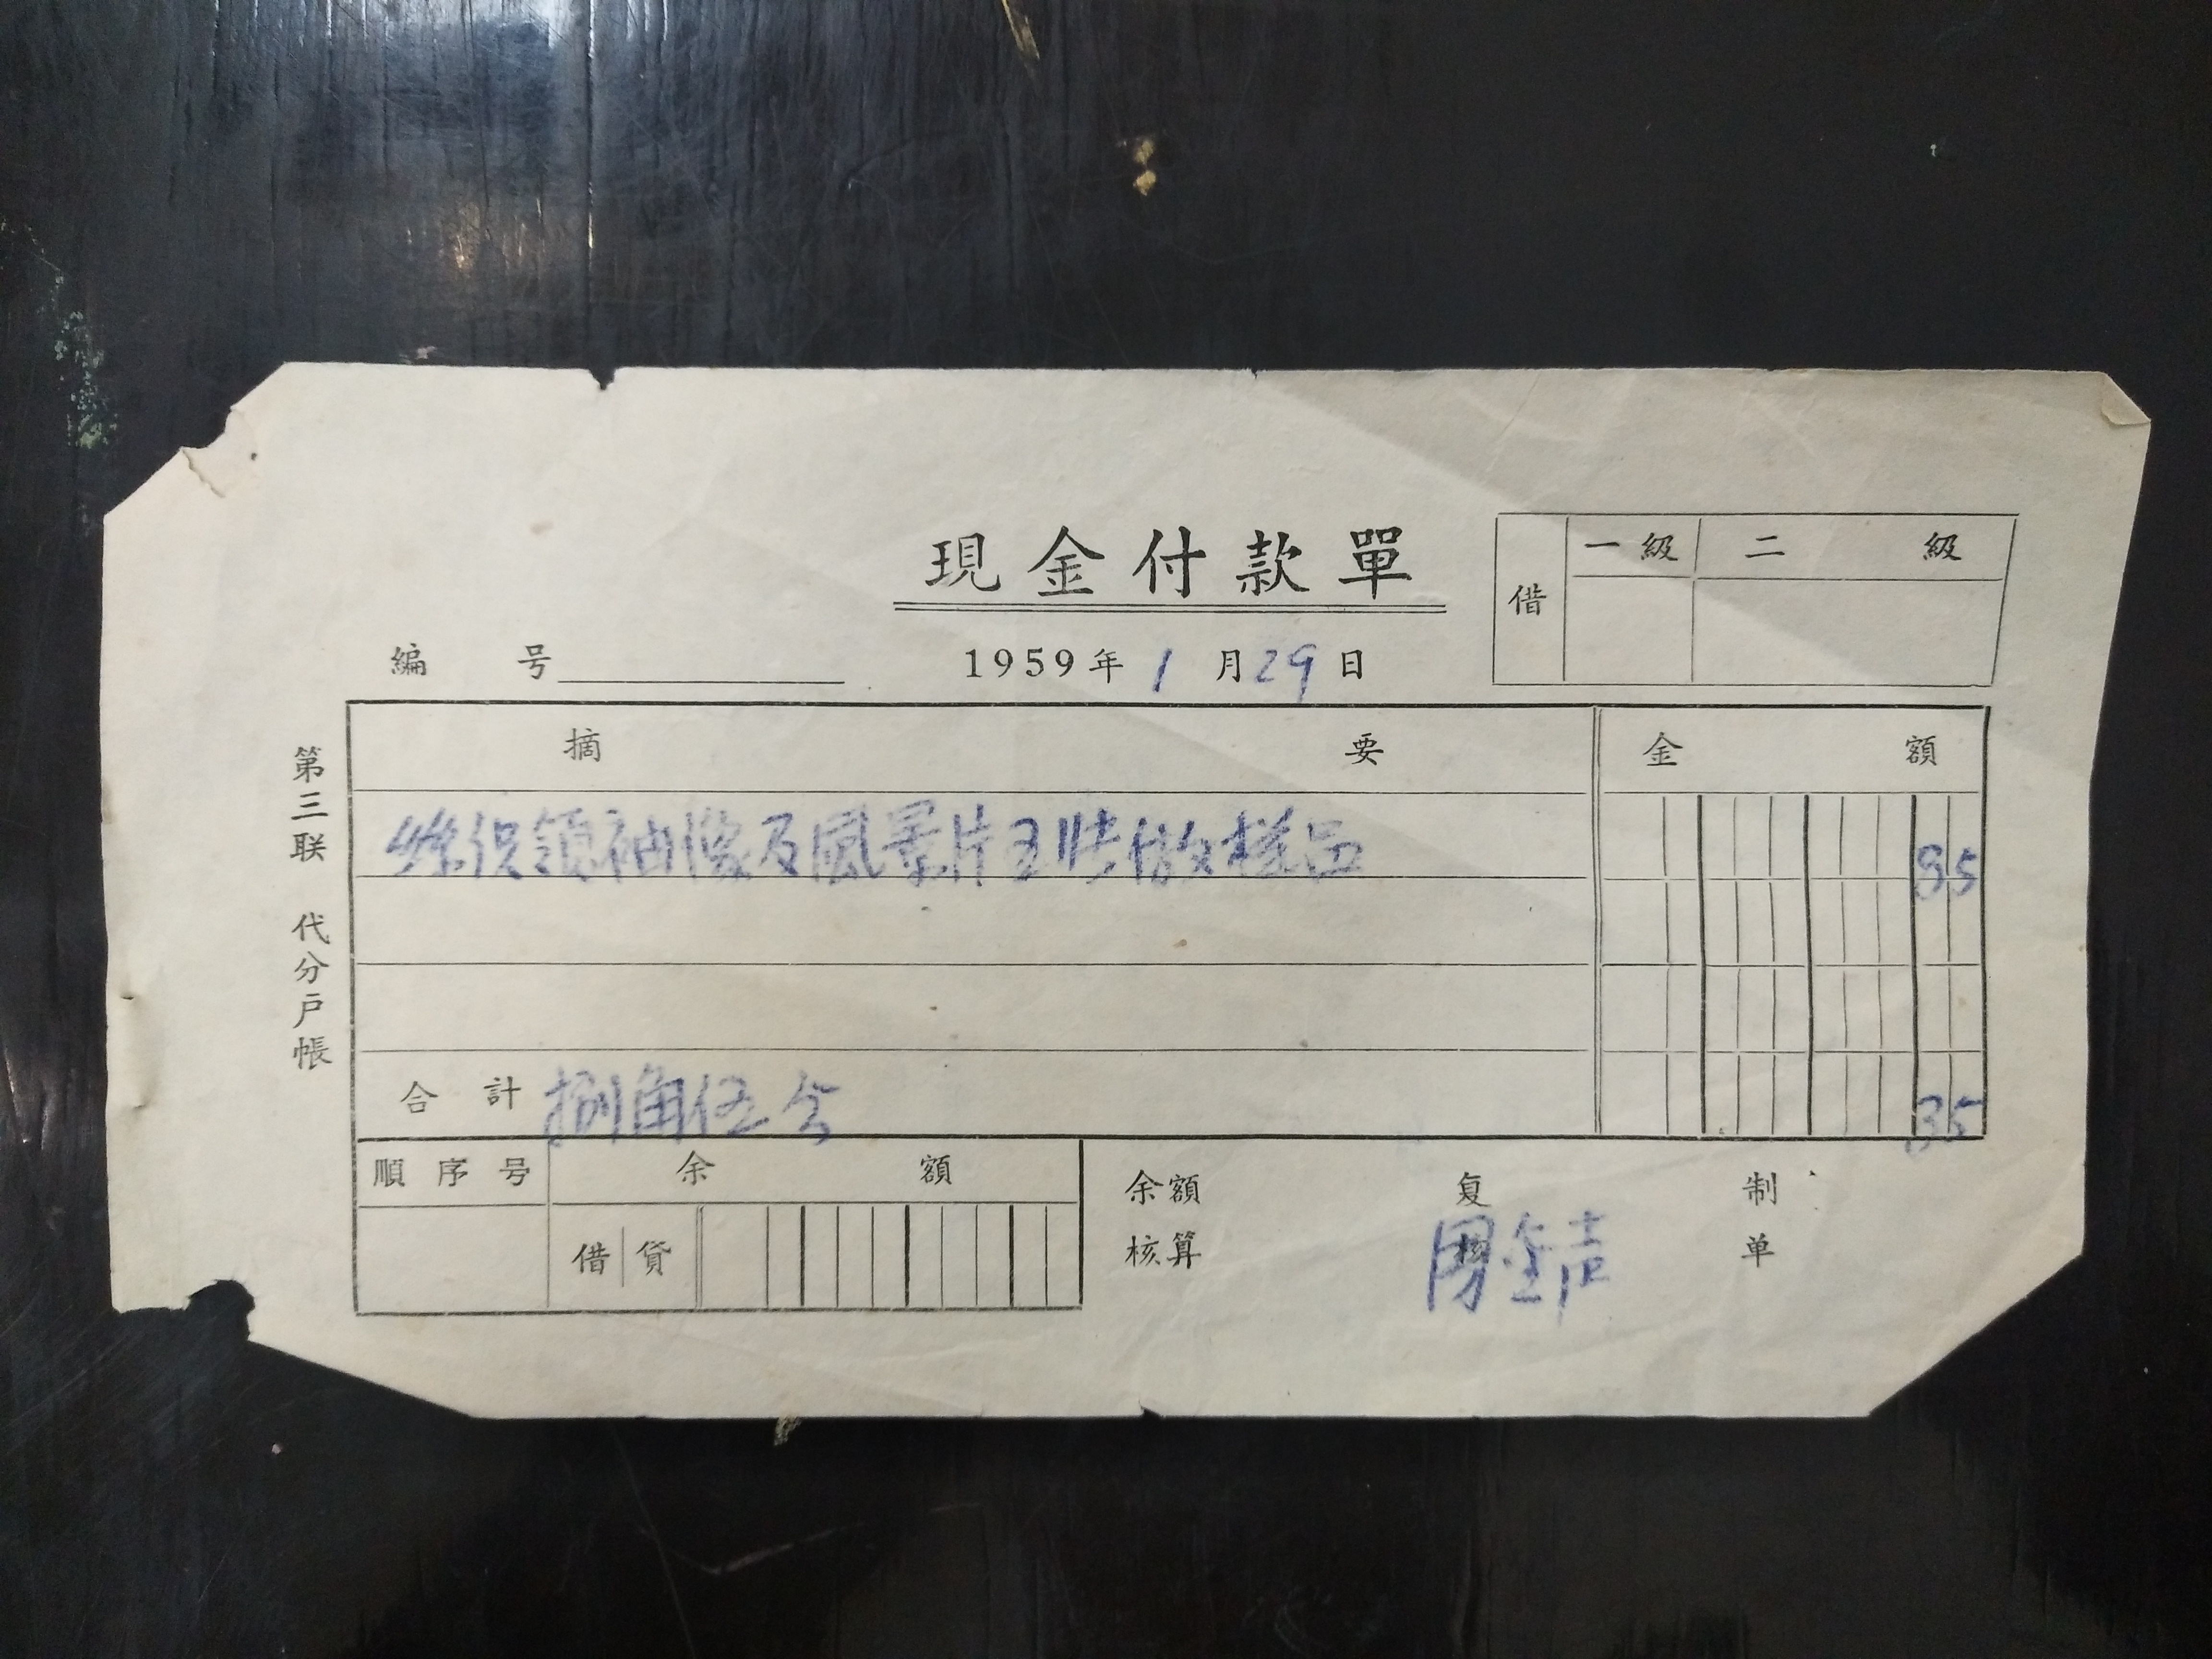 現金付款單
借 一級 二級
編号 1959年1月29日
摘要 金額
絲织領袖像及風景片五张做樣品 85
合計 捌角伍分 85
順序号 余額
借 貸
余額核算 复核 制单
周金声
第三联 代分戶帳